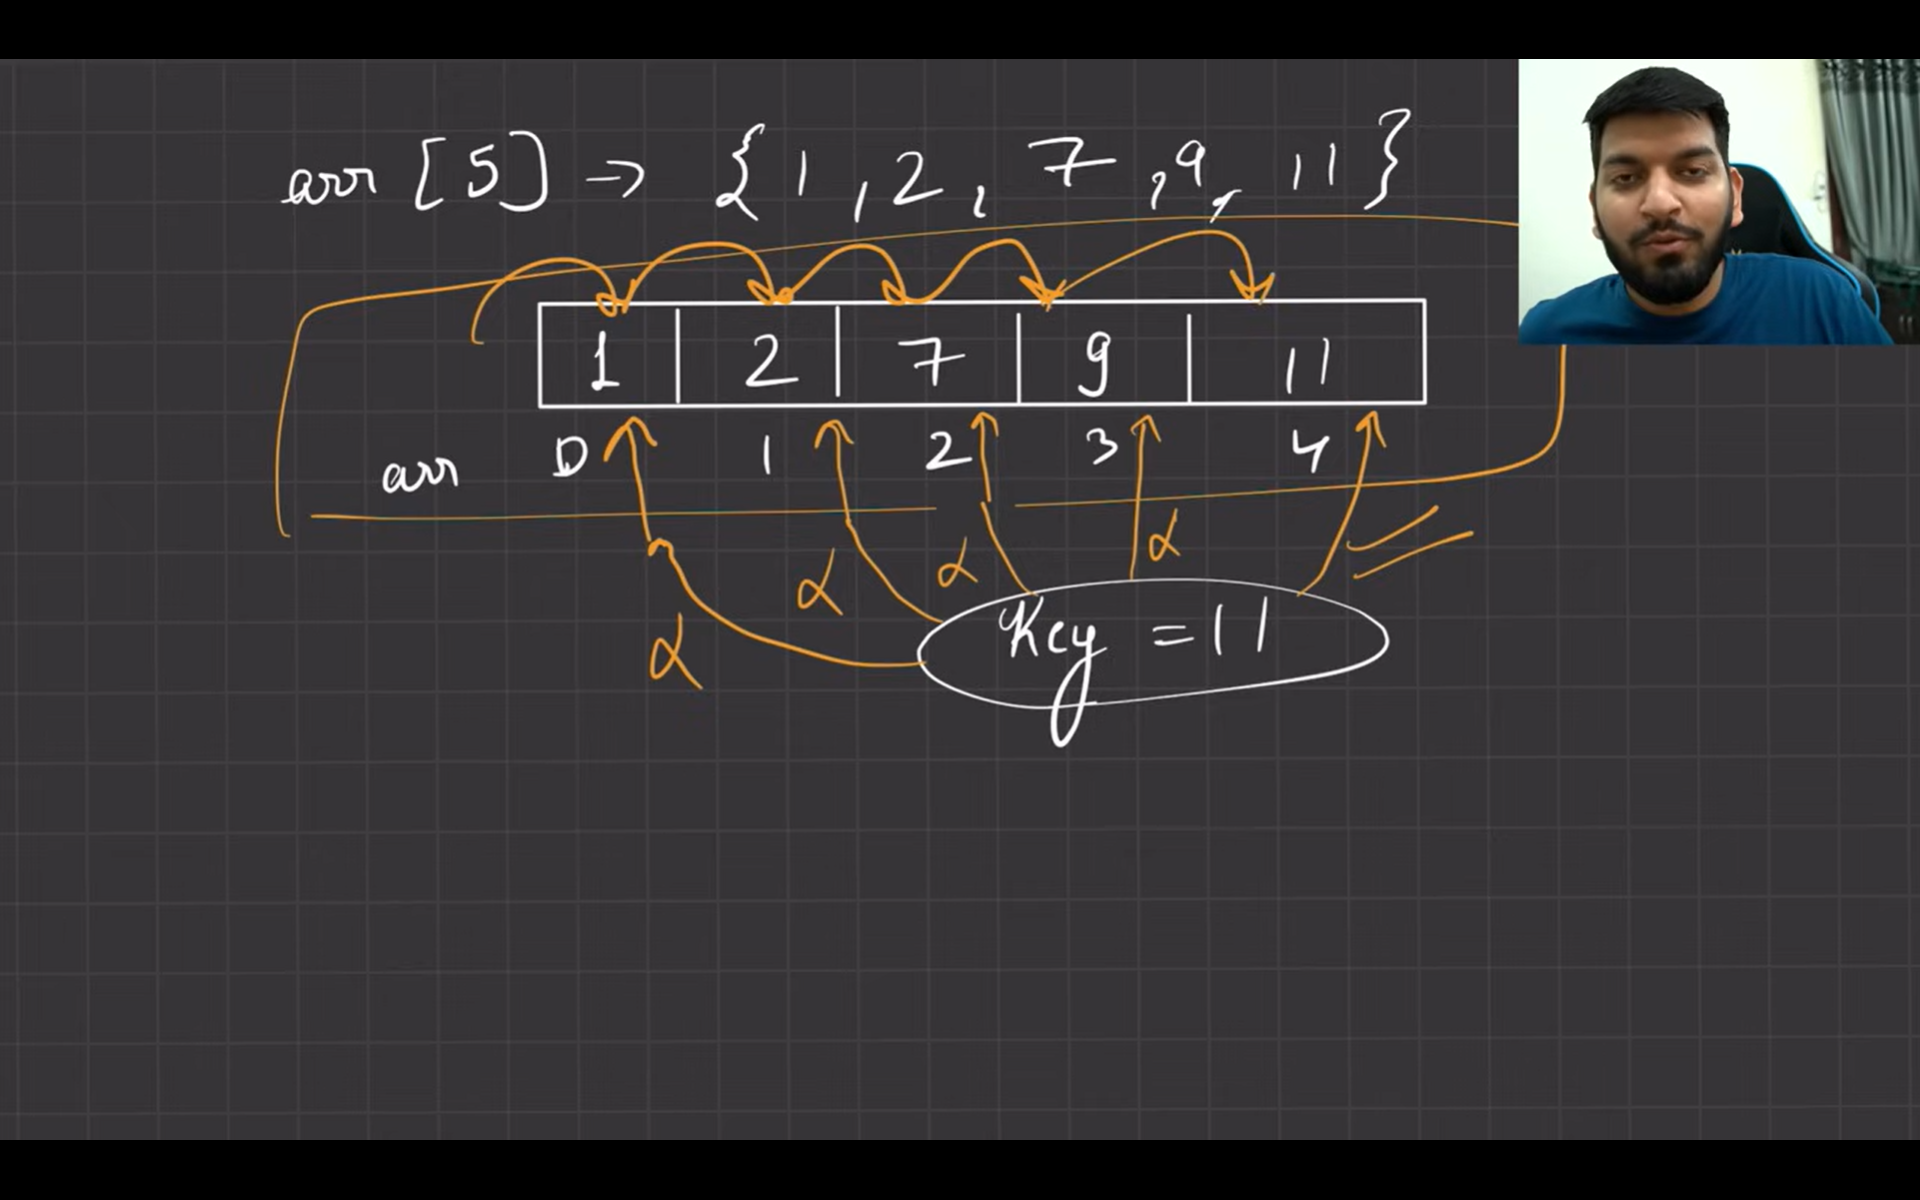 arr [5] → {1, 2, 7, 9, 11}
1 2 7 9 11
arr 0 1 2 3 4
α α α α
Key = 11